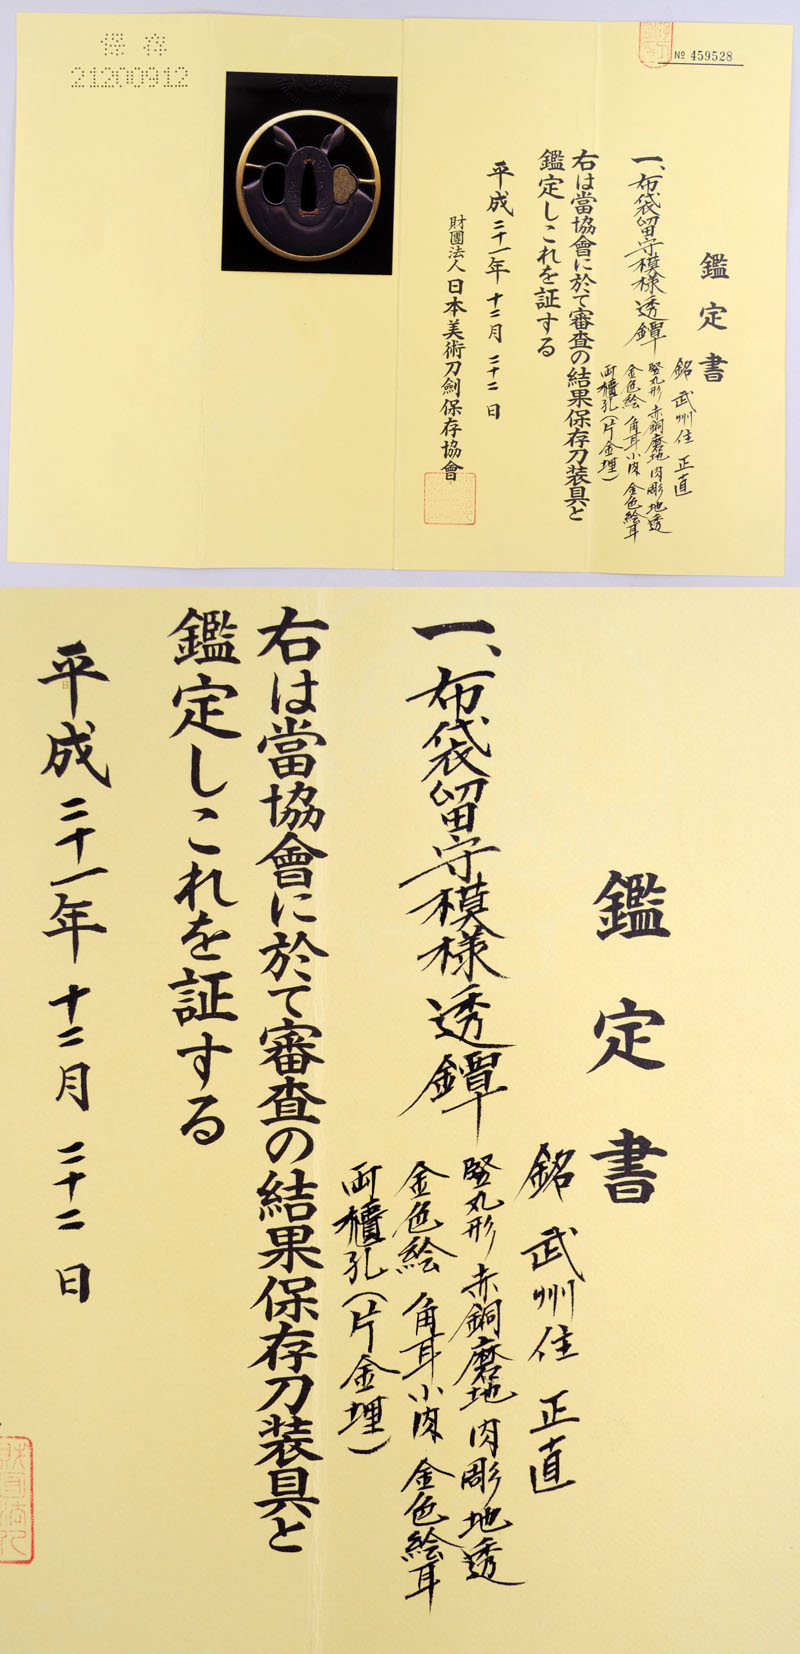 保存
21200912
№ 459528
鑑定書
一、布袋留守模様透鐔
銘 武州住 正直
竪丸形 赤銅磨地 肉彫地透
金色絵 角耳小肉 金色絵耳
両櫃孔(片金埋)
右は當協會に於て審査の結果保存刀装具と
鑑定しこれを証する
平成二十一年 十二月 二十二日
財團法人 日本美術刀劍保存協會
鑑定書
一、布袋留守模様透鐔
銘 武州住 正直
竪丸形 赤銅磨地 肉彫地透
金色絵 角耳小肉 金色絵耳
両櫃孔(片金埋)
右は當協會に於て審査の結果保存刀装具と
鑑定しこれを証する
平成二十一年 十二月 二十二日